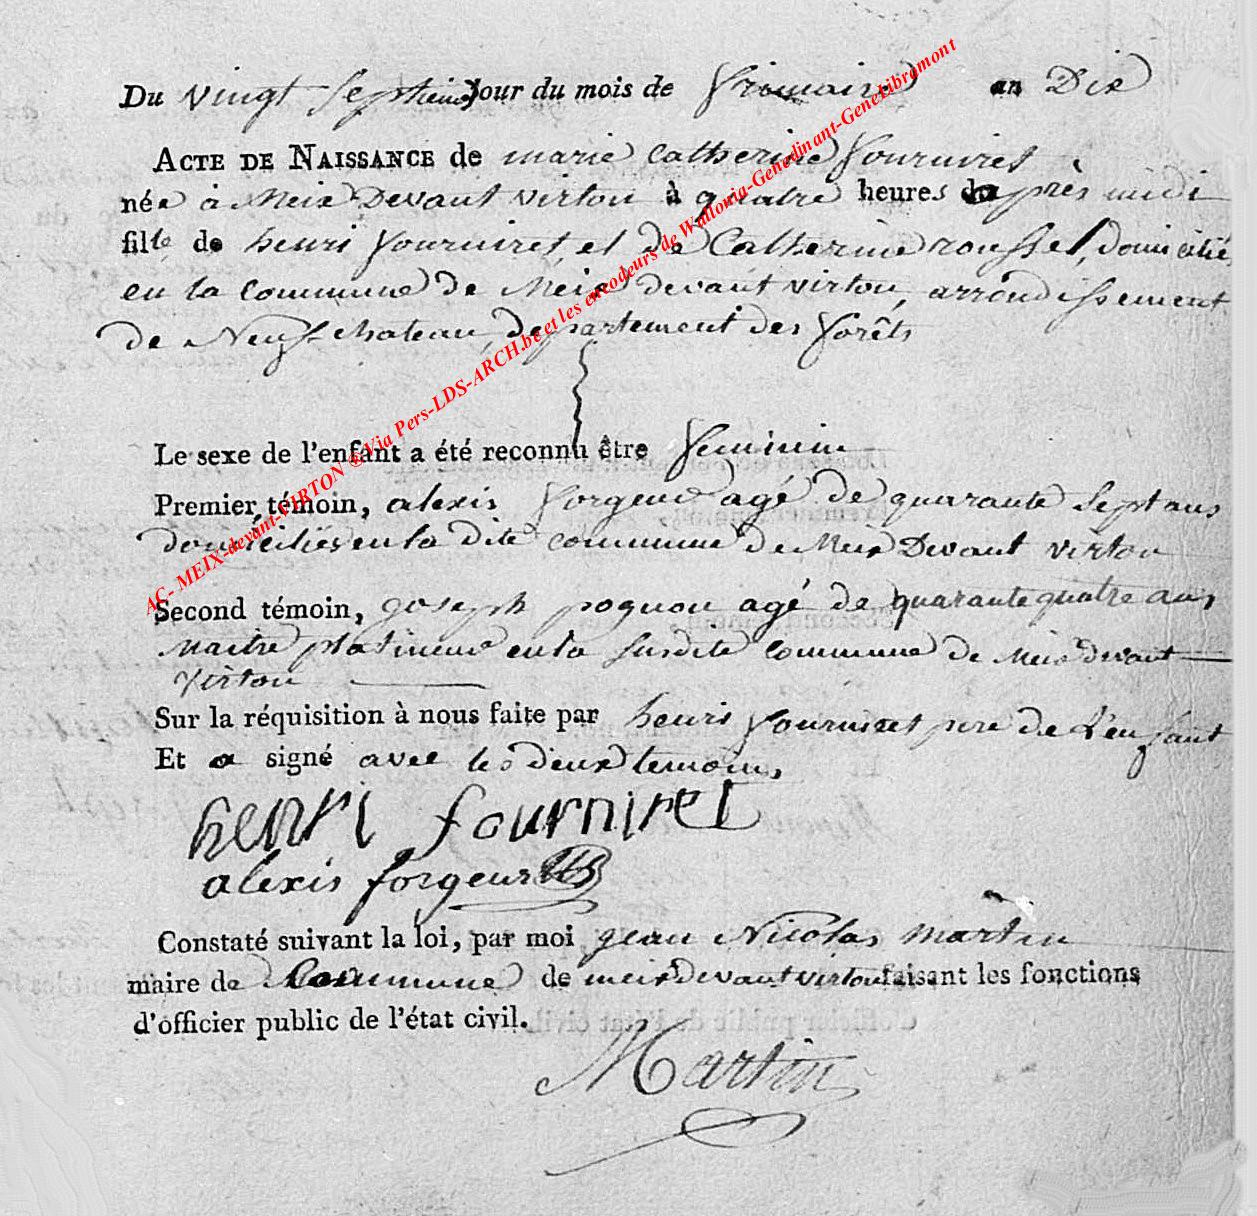 Du vingt septieme jour du mois de frimaire an Dix
ACTE DE NAISSANCE de marie Catherine fourniret
née à Meix Devant virton à quatre heures d'après midi
fille de henri fourniret, et de Catherine roussel, domicilié
en la commune de Meix devant virton, arrondissement
de Neufchateau, departement des forêts
Le sexe de l'enfant a été reconnu être feminin
Premier témoin, alexis forgeur agé de quarante sept ans
domiciliés en la dite commune de Meix Devant virton
Second témoin, joseph pognon agé de quarante quatre ans,
Maitre platineur en la susdite commune de Meix devant
virton
Sur la réquisition à nous faite par henri fourniret pere de L'enfant
Et a signé avec les deux temoins,
henri fourniret
alexis forgeur
Constaté suivant la loi, par moi jean Nicolas martin
maire de Commune de meix devant virton faisant les fonctions
d'officier public de l'état civil.
Martin
AC- MEIX-devant-VIRTON ® Via Pers-LDS-ARCH.be et les encodeurs de Wallonia-Genedinant-GeneLibramont